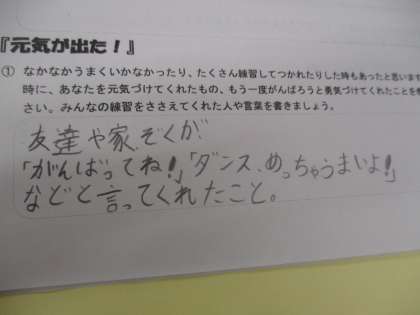 『元気が出た！』
① なかなかうまくいかなかったり、たくさん練習してつかれたりした時もあったと思います
時に、あなたを元気づけてくれたもの、もう一度がんばろうと勇気づけてくれたことを
さい。みんなの練習をささえてくれた人や言葉を書きましょう。
友達や家ぞくが
「がんばってね!」「ダンス、めっちゃうまいよ!」
などと言ってくれたこと。